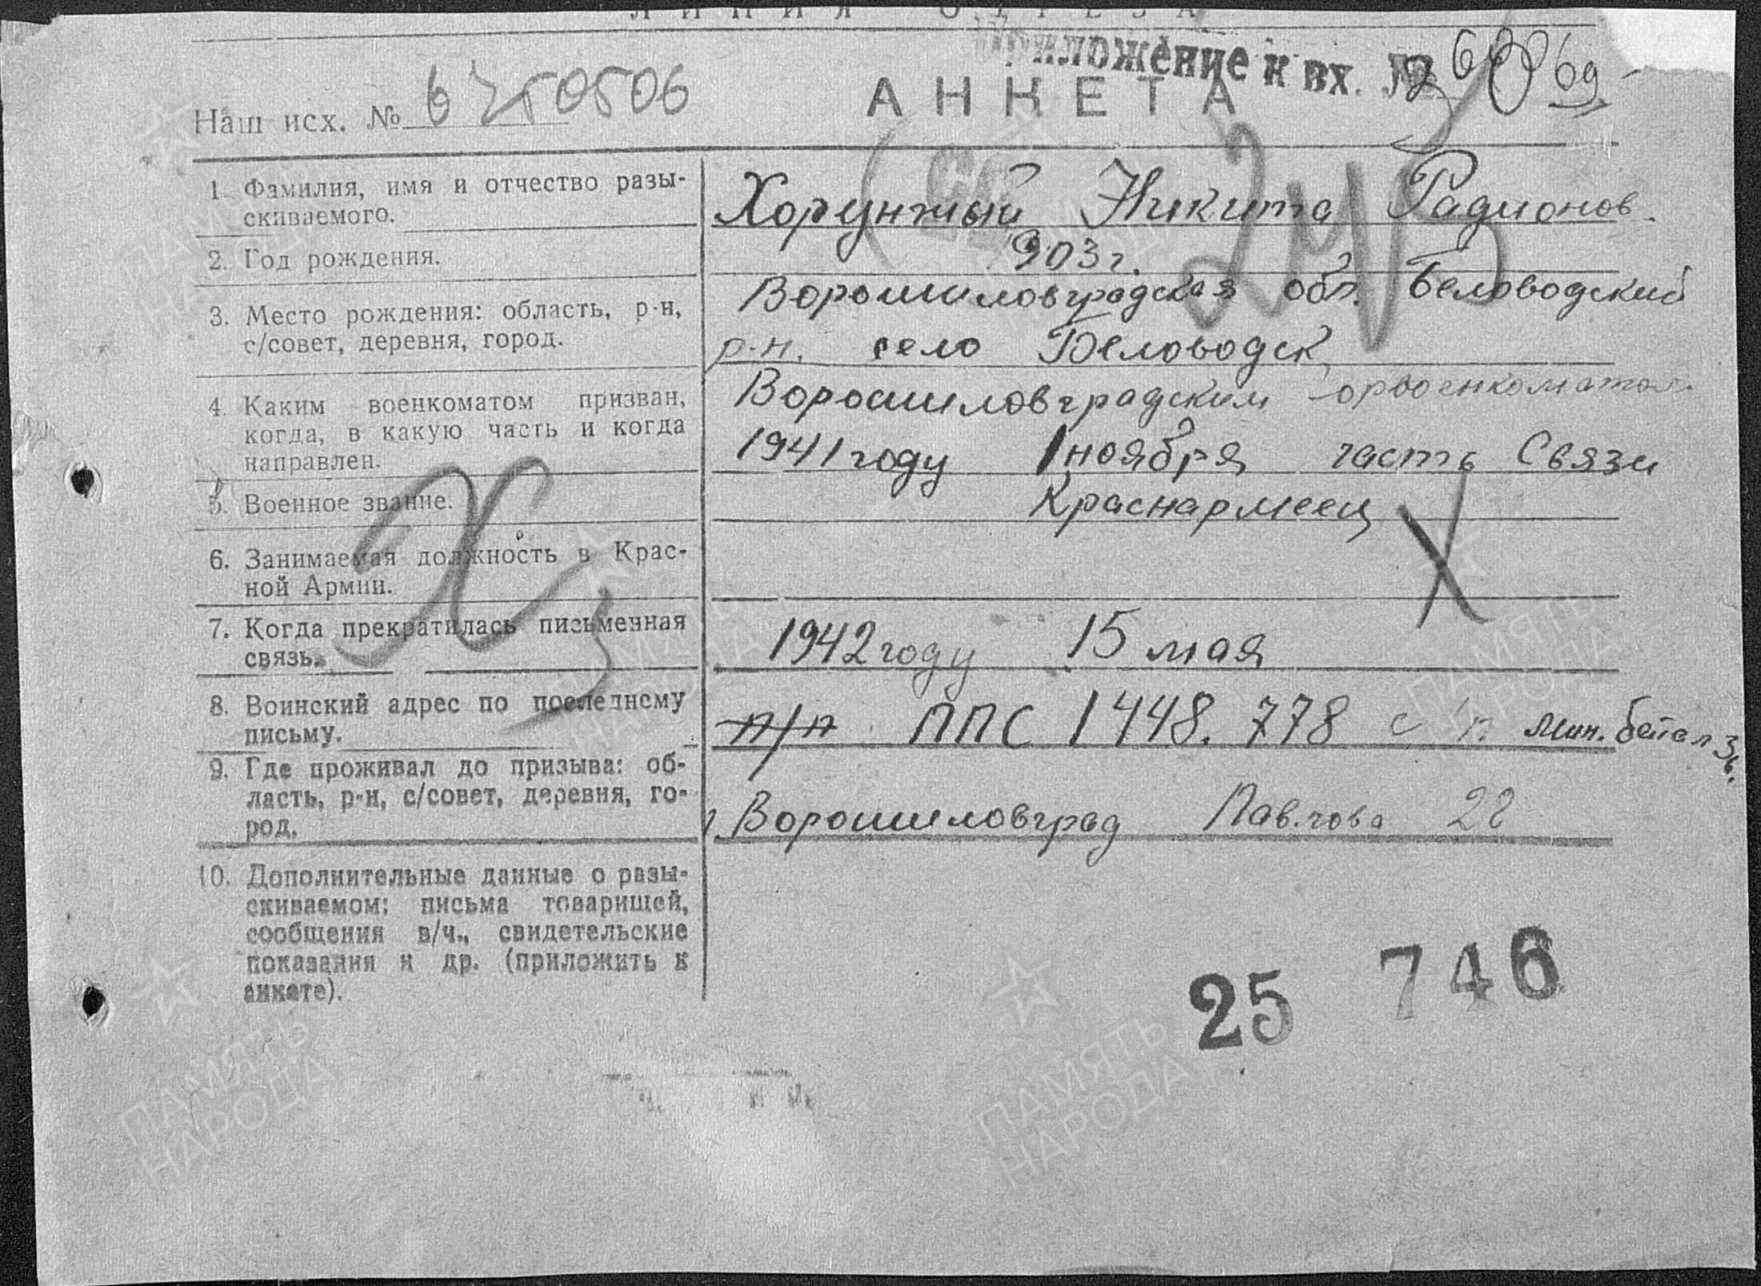 ЛИНИЯ ОТРЕЗА
Приложение к вх. №
Наш исх. №
АНКЕТА
1. Фамилия, имя и отчество разы-
скиваемого.
Хорунжый Никита Радионов.
2. Год рождения.
903 г.
3. Место рождения: область, р-н,
с/совет, деревня, город.
Ворошиловградская обл. Беловодский
р-н. село Беловодск
4. Каким военкоматом призван,
когда, в какую часть и когда
направлен.
Ворошиловградским
1941 году 1 ноября часть Связи
5. Военное звание.
Краснармеец
6. Занимаемая должность в Крас-
ной Армии.
7. Когда прекратилась письменная
связь.
1942 году 15 мая
8. Воинский адрес по последнему
письму.
п/п ППС 1448. 778 с п мин. батал
9. Где проживал до призыва: об-
ласть, р-н, с/совет, деревня, го-
род.
Ворошиловград 22
10. Дополнительные данные о разы-
скиваемом: письма товарищей,
сообщения в/ч., свидетельские
показания и др. (приложить к
анкете).
25 746
ПАМЯТЬ
НАРОДА